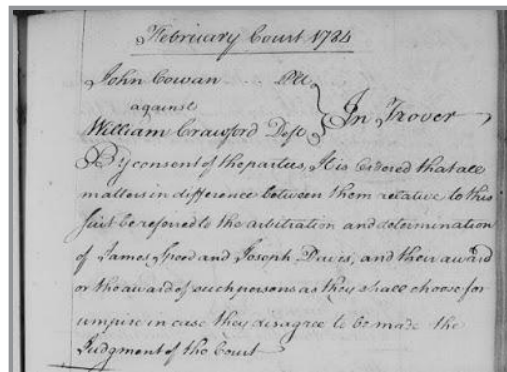 February Court 1784
John Cowan Plt
against
William Crawford Deft
In Trover
By consent of the parties, It is Ordered that all
matters in difference between them relative to this
suit be referred to the arbitration and determination
of James Speed and Joseph Davis, and their award
or the award of such persons as they shall choose for
umpire in case they disagree to be made the
Judgment of the Court